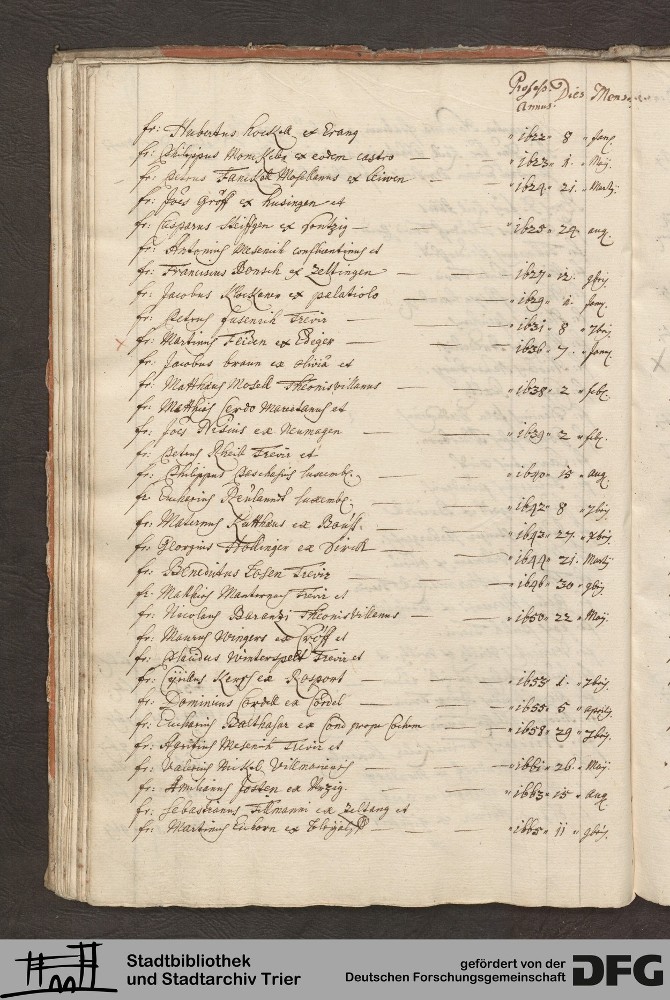 Profess. Dies Mens
annus.
fr: Hubertus ex Erang " 1622 " 8 " Jan
fr: Philippus ex eodem castro — " 1623 " 1. " Maij.
fr: Petrus Mosellanus ex Leiwen — " 1624 " 21. " Martij
fr: Joes Gröff ex Husingen et
fr: Casparus Steffgen ex Pontzig — " 1625 " 24. aug.
fr: Antonius Mesenich et
fr: Franciscus Bonsch ex Zeltingen — " 1627 " 12. 9bris.
fr: Jacobus ex palatiolo — " 1629 " 1. Jan.
fr: Petrus Trevir — " 1631 " 8 " 7bris.
fr: Martinus Feiden ex Ediger — " 1636 " 7. " Janij
fr: Jacobus braun ex olivia et
fr: Matthæus Mosell Theonisvillanus — " 1638 " 2 " feb.
fr: Matthias Cerdo et
fr: Joes ex Neumagen — " 1639 " 2 " feb.
fr: Petrus Rheit Trevir et
fr: Philippus Paschasius luxemb. — " 1640 " 15 " aug.
fr: Eucharius Reulandt luxemb. — " 1642 " 8 " 7bris
fr: Maternus ex — " 1643 " 27. " Xbris
fr: Georgius Hollinger ex Sirck — " 1644 " 21. Martij
fr: Benedictus Losen Trevir — " 1646 " 30 " 9bris.
fr: Mathias Trevir et
fr: Nicolaus Theonisvillanus — " 1650 " 22 " Maij.
fr: Maurus Wingers ex Cröff et
fr: Claudius Winterspelt Trevir et
fr: Cyrillus ex Rosport — " 1653 " 1. " 7bris.
fr: Dominicus Cordell ex Cordel — " 1655 " 5 " aprilis
fr: Eucharius Balthasar ex Cond prope Cochem — " 1658 " 29 " 7bris.
fr: Agritius Mesenich Trevir et
fr: Valerius Nickel — " 1661 " 26. " Maij.
fr: Aemilianus Josten ex Ürzig. — " 1663 " 15 " aug
fr: Sebastianus Tillmanni ex Zeltang et
fr: Martinus Eichorn ex — " 1665 " 11 " 9bris.
Stadtbibliothek
und Stadtarchiv Trier
gefördert von der
Deutschen Forschungsgemeinschaft
DFG